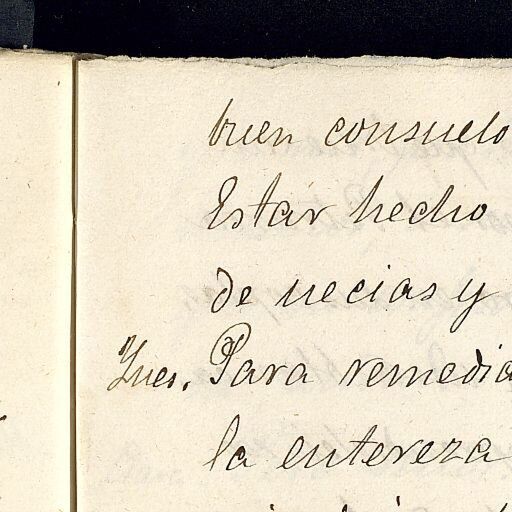 buen consuelo
Estar hecho
de necias y
Ynes. Para remedia
la entereza